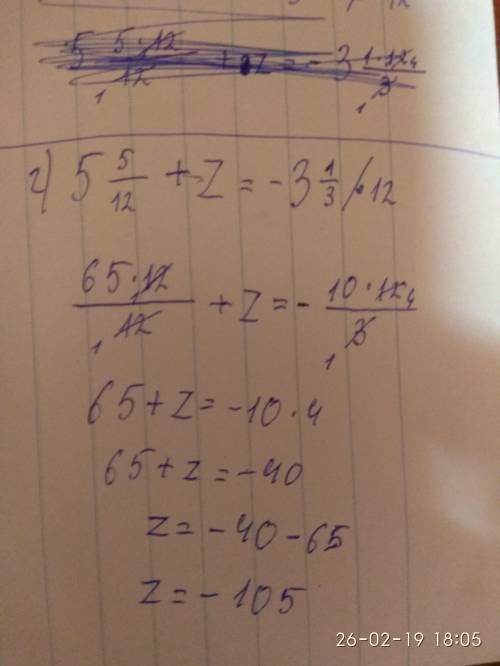 г) 5 5/12 + z = -3 1/3 /·12
65·12/12 + z = - 10·12 4/3
1 1
65 + z = -10·4
65 + z = -40
z = -40 - 65
z = -105
26-02-19 18:05